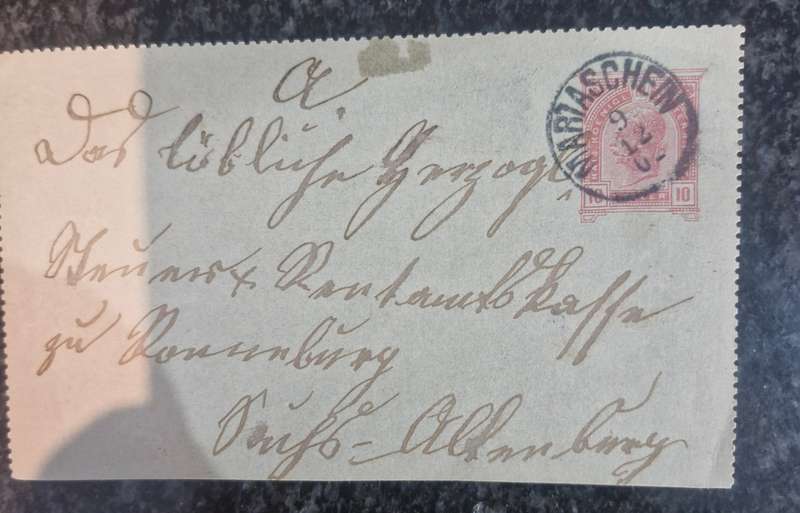 A.
Das löbliche Herzogl.
Steuer & Rentamts Kasse
zu Ronneburg
Sachs-Altenburg
MARIASCHEIN
9
12
10
10